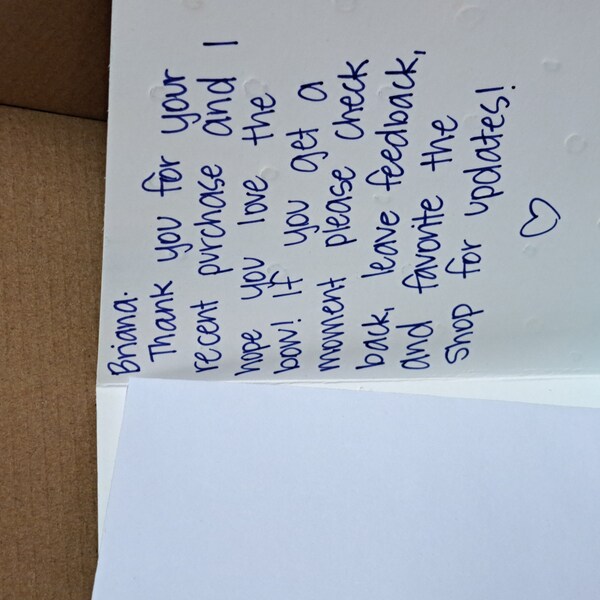 Briana.
Thank you for your
recent purchase and I
hope you love the
bow! If you get a
moment please check
back, leave feedback,
and favorite the
shop for updates!